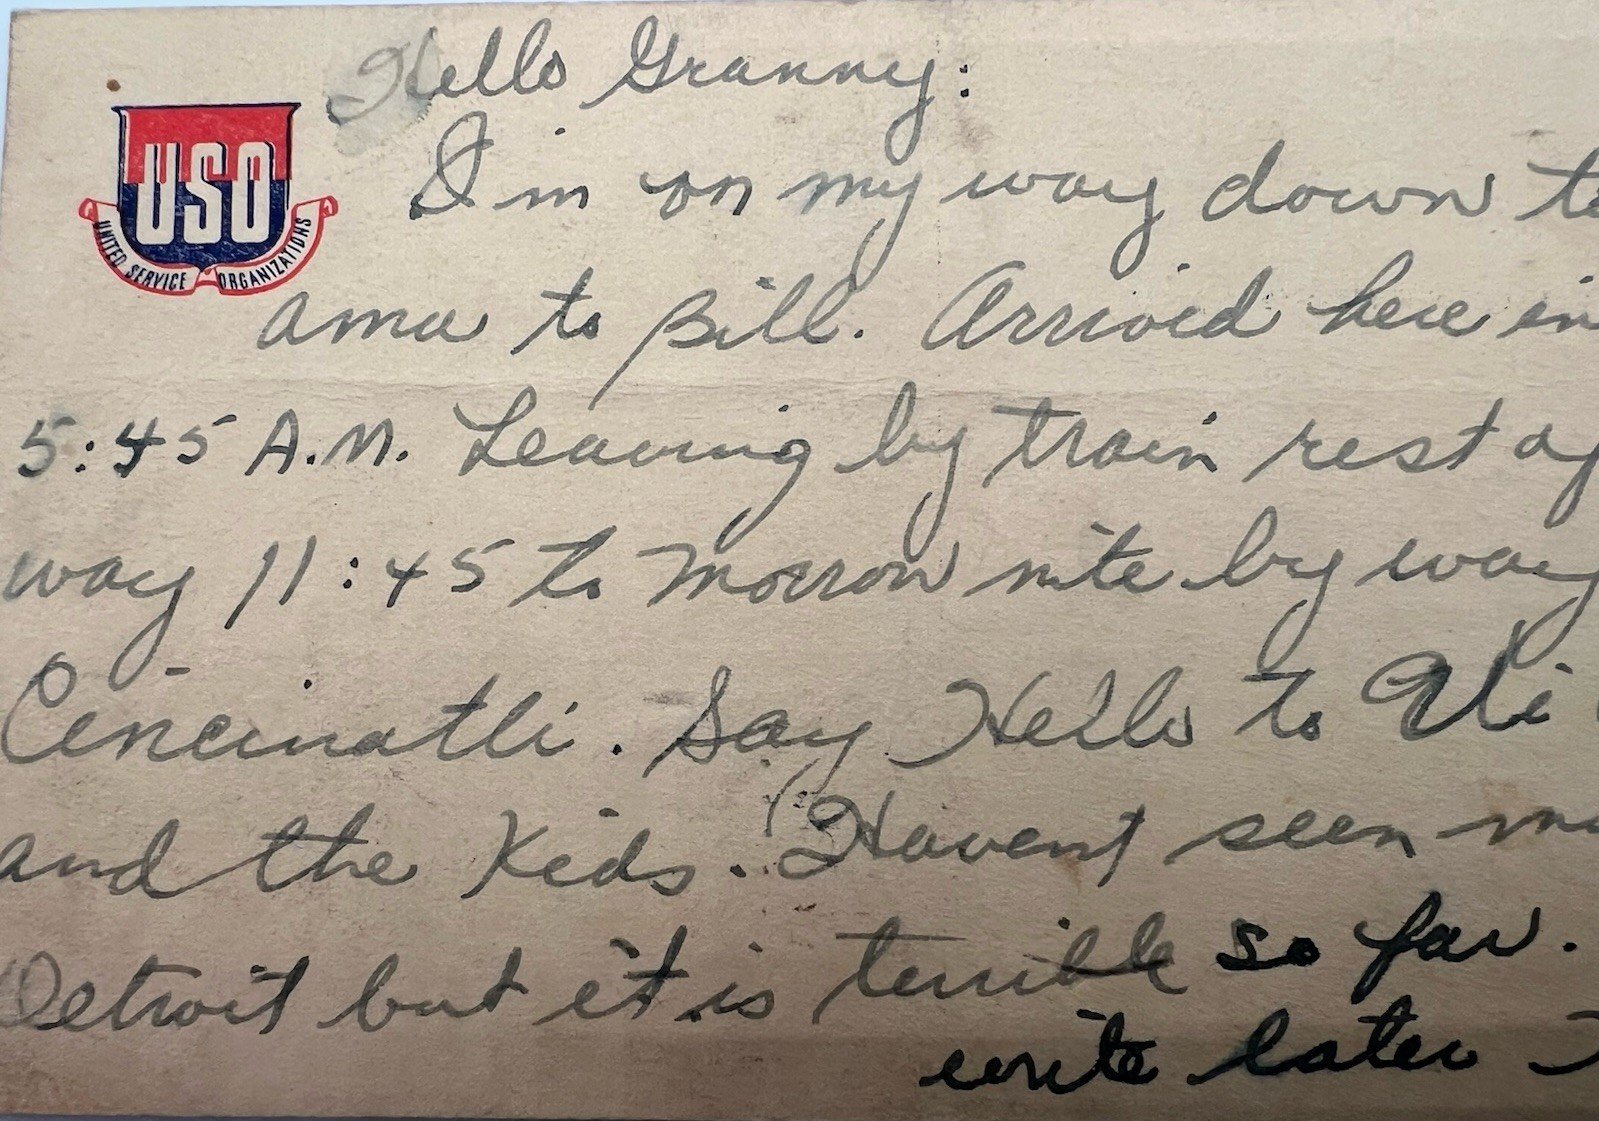 Hello Granny:
USO
UNITED SERVICE ORGANIZATIONS
I'm on my way down to
ama to Bill. Arrived here in
5:45 A.M. Leaving by train rest of
way 11:45 to morrow nite by way
Cincinatti. Say Hello to
and the Kids. Havent seen
Detroit but it is terrible so far.
write later